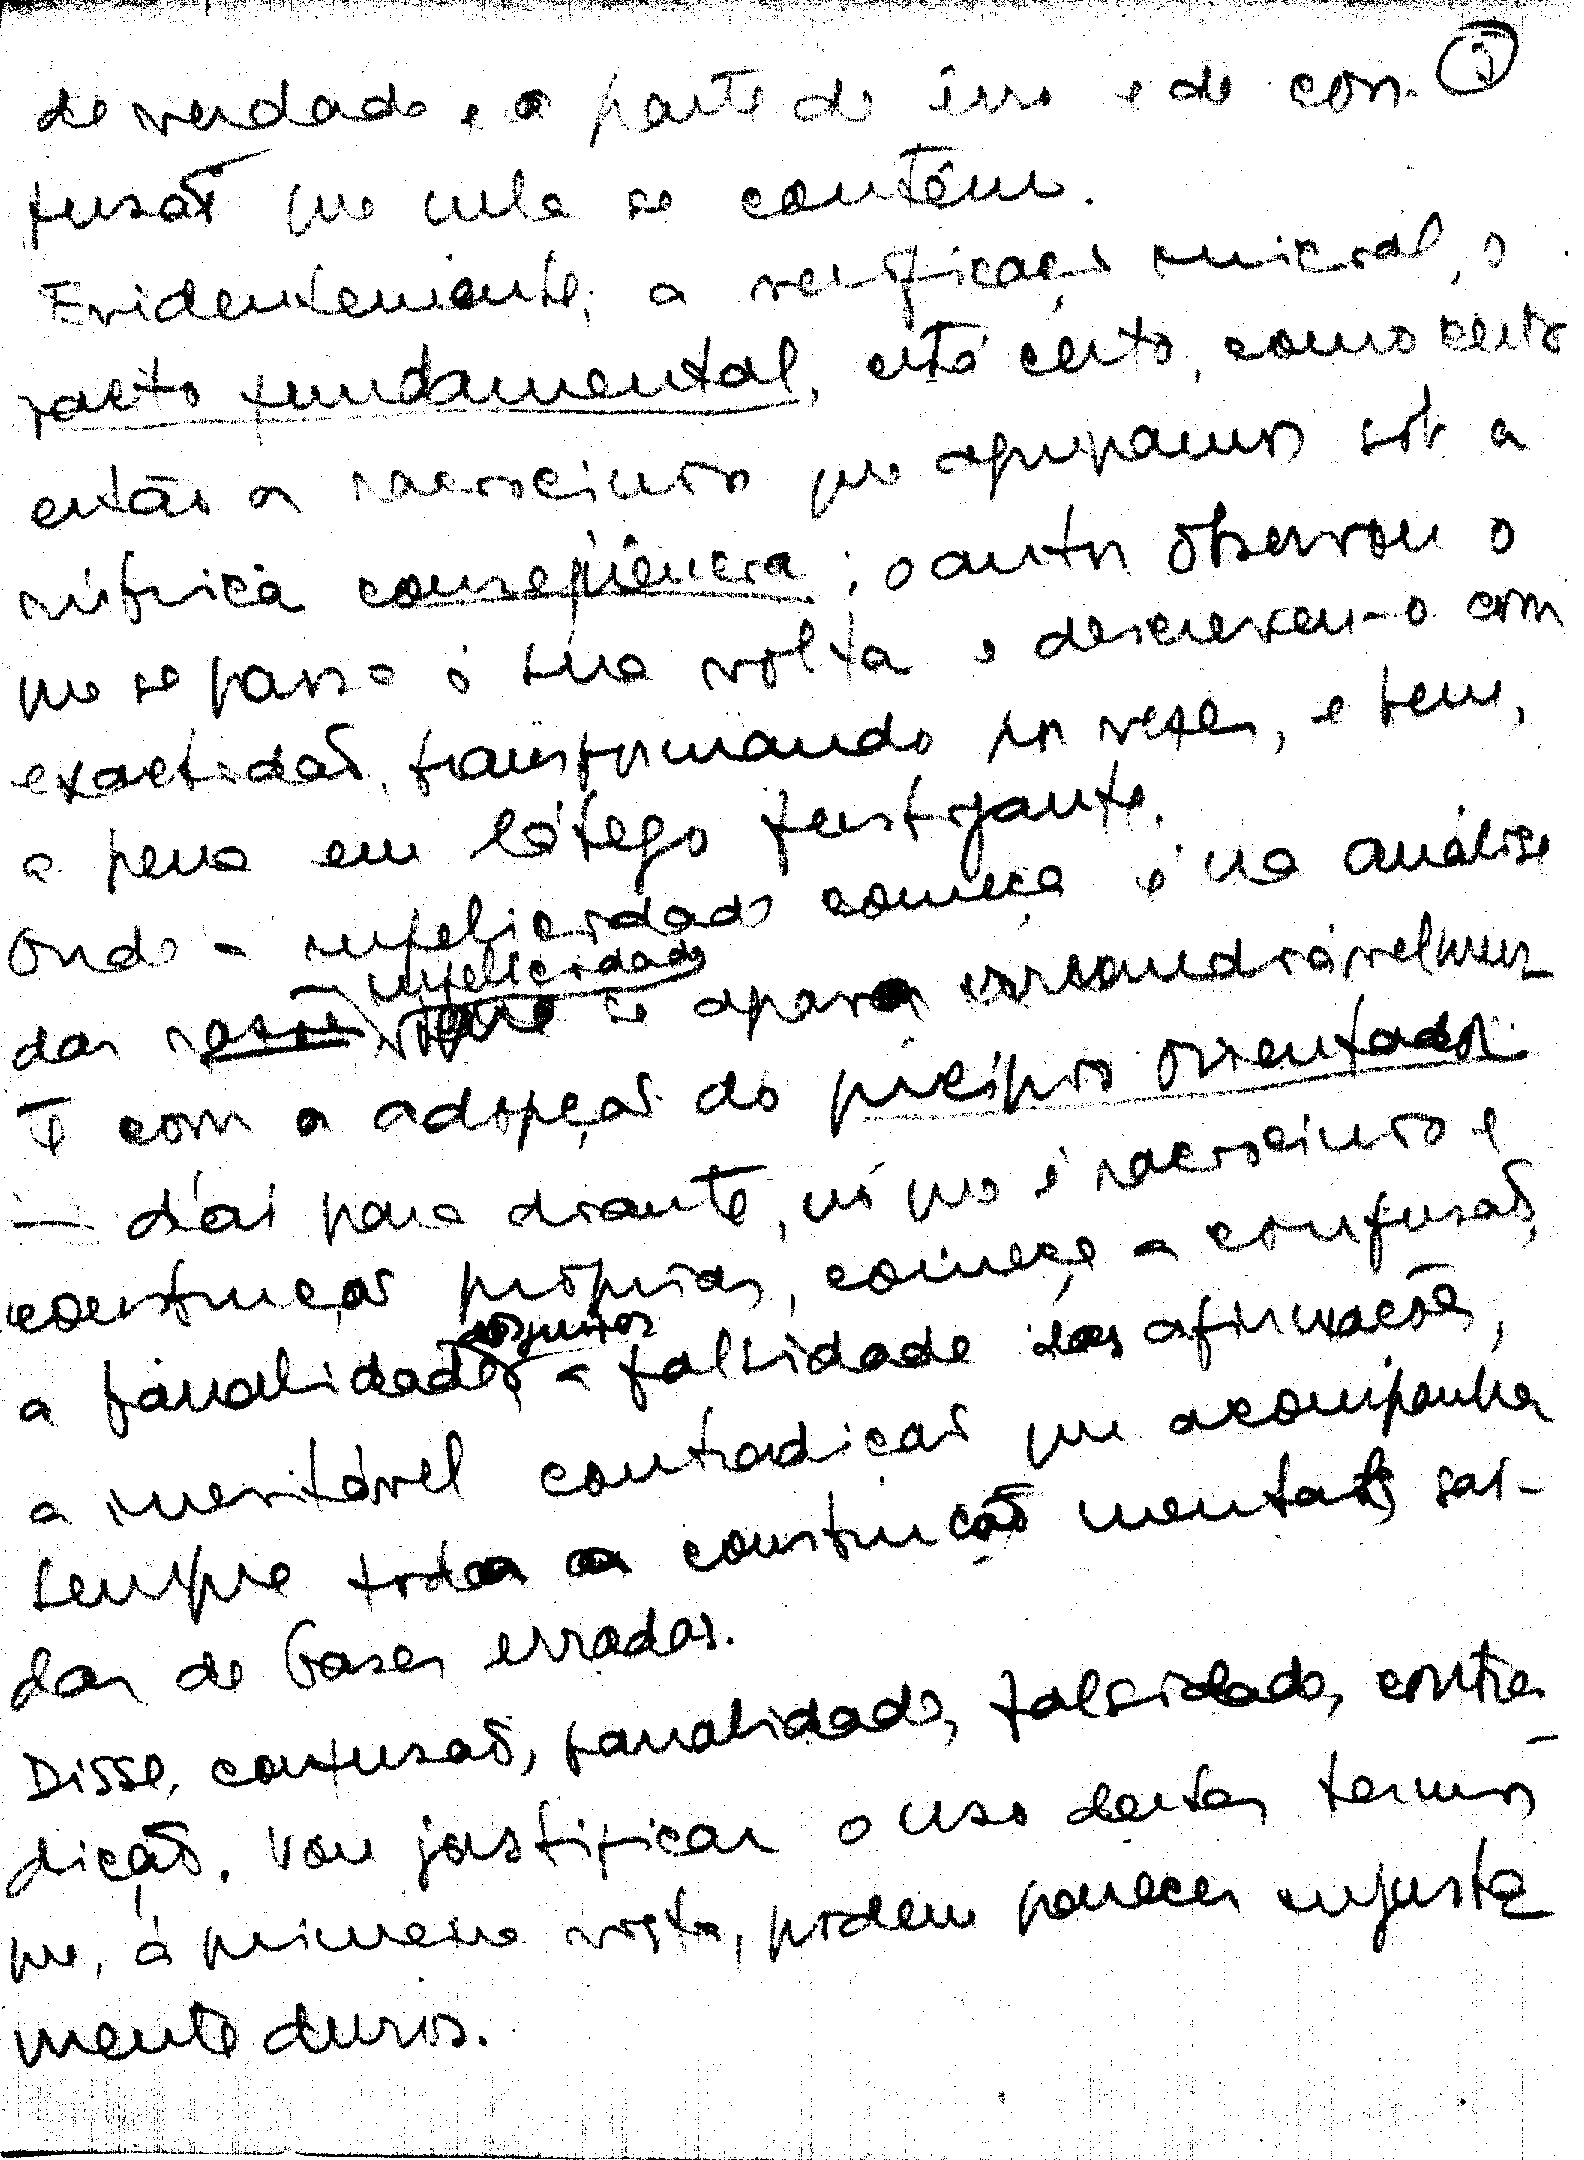 de verdade e a parte de êrro e de con- ③
fusão que nela se contém.
Evidentemente, a verificação inicial, o
facto fundamental, está certo, como certo
então o raciocínio que agrupamos sob a
rúbrica conseqüência; o autor observou o
que se passa à sua volta e descreveu-o com
exactidão, transformando por vezes, e bem,
a pena em látego fustigante.
Onde a infelicidade começa é na análise
infelicidade
das razões que se agrava extraordináriamen-
te com a adopção do pricípio orientador.
— daí para diante, no que é raciocínio e
construção próprias, começa a confusão,
a banalidade, a falsidade das afirmações,
a inevitável contradição que acompanha
sempre toda a construção mental saí-
das de bases erradas.
Disse, confusão, banalidade, falsidade, contra-
dição. Vou justificar o uso destes termos
que, à primeira vista, podem parecer injusta-
mente duros.